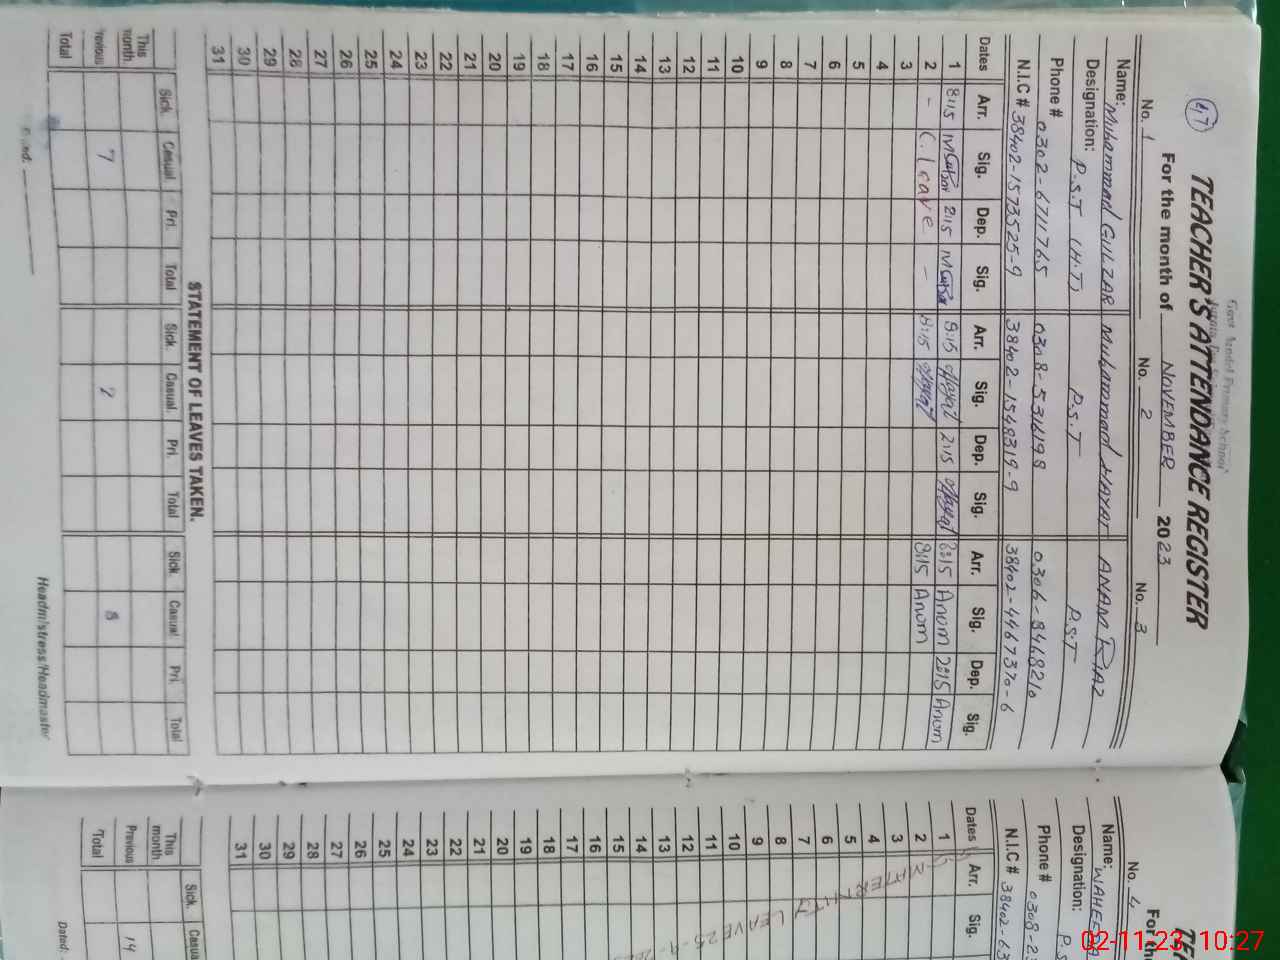 47
Govt Model Primary School
TEACHER'S ATTENDANCE REGISTER
For the month of NOVEMBER 2023
No. 1 No. 2 No. 3
Name: Muhammad GULZAR Muhammad HAYAT ANAM RIAZ
Designation: P.S.T (H.T) P.S.T P.S.T
Phone # 0302-6711765 0308-5316198 0306-8468210
N.I.C # 38402-1573525-9 38402-1548319-9 38402-4467370-6
Dates Arr. Sig. Dep. Sig. Arr. Sig. Dep. Sig. Arr. Sig. Dep. Sig.
1 8:15 2:15 8:15 Hayat 2:15 Hayat 8:15 Anam 2:15 Anam
2 - C. Leave - 8:15 Hayat 8:15 Anam
3
4
5
6
7
8
9
10
11
12
13
14
15
16
17
18
19
20
21
22
23
24
25
26
27
28
29
30
31
STATEMENT OF LEAVES TAKEN.
Sick. Casual. Pri. Total Sick. Casual. Pri. Total Sick. Casual Pri. Total
This month
Previous 7 7 8
Total
Headmistress/Headmaster
TEA
For th
No. 4
Name: WAHEEDA
Designation: P.S
Phone # 0308-2
N.I.C # 38402-63
Dates Arr. Sig.
1
2
3
4
5
6
7
8
9
10
11
12
13
14
15
16
17
18
19
20
21
22
23
24
25
26
27
28
29
30
31
MATERNITY LEAVE 25-9-20
Sick. Casua
This month
Previous 14
Total
Dated:
02-11-23 10:27